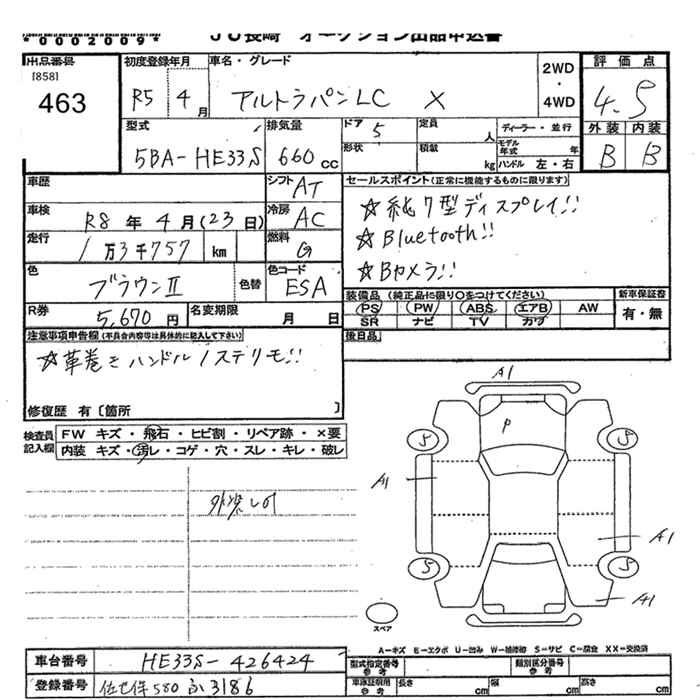 *0002009*
JU長崎 オークション出品申込書
出品番号 初度登録年月 車名・グレード 2WD・4WD 評価点
[858]
463 R5年 4月 アルトラパンLC X 4.5
型式 排気量 ドア 5 定員 人 ディーラー・並行 外装 内装
5BA-HE33S 660cc 形状 積載 kg モデル年式 年 ハンドル 左・右 B B
車歴 シフト AT セールスポイント(正常に機能するものに限ります)
車検 R8年4月(23日) 冷房 AC ☆純7型ディスプレイ!!
走行 1万3千757 km 燃料 G ☆Bluetooth!!
色 ブラウンⅡ 色替 色コード ESA ☆Bカメラ!!
R券 5,670円 名変期限 月 日 装備品(純正品に限り○をつけてください) 新車保証書
PS PW ABS エアB AW 有・無
SR ナビ TV カワ
注意事項申告欄(不具合内容等は具体的に記入して下さい) 後日品
☆革巻きハンドル/ステリモ!!
修復歴 有〔箇所 〕
検査員記入欄 FW キズ・飛石・ヒビ割・リペア跡・×要
内装 キズ・汚レ・コゲ・穴・スレ・キレ・破レ
A1
P
5 5
A1
外装しの
A1
5 5
A1
スペア
A-キズ E-エクボ U-凹み W-補修跡 S-サビ C-腐食 XX-交換済
車台番号 HE33S-426424 型式指定番号 参考 類別区分番号 参考
登録番号 佐世保580 ふ3186 車庫証明用 参考 長さ cm 幅 cm 高さ cm